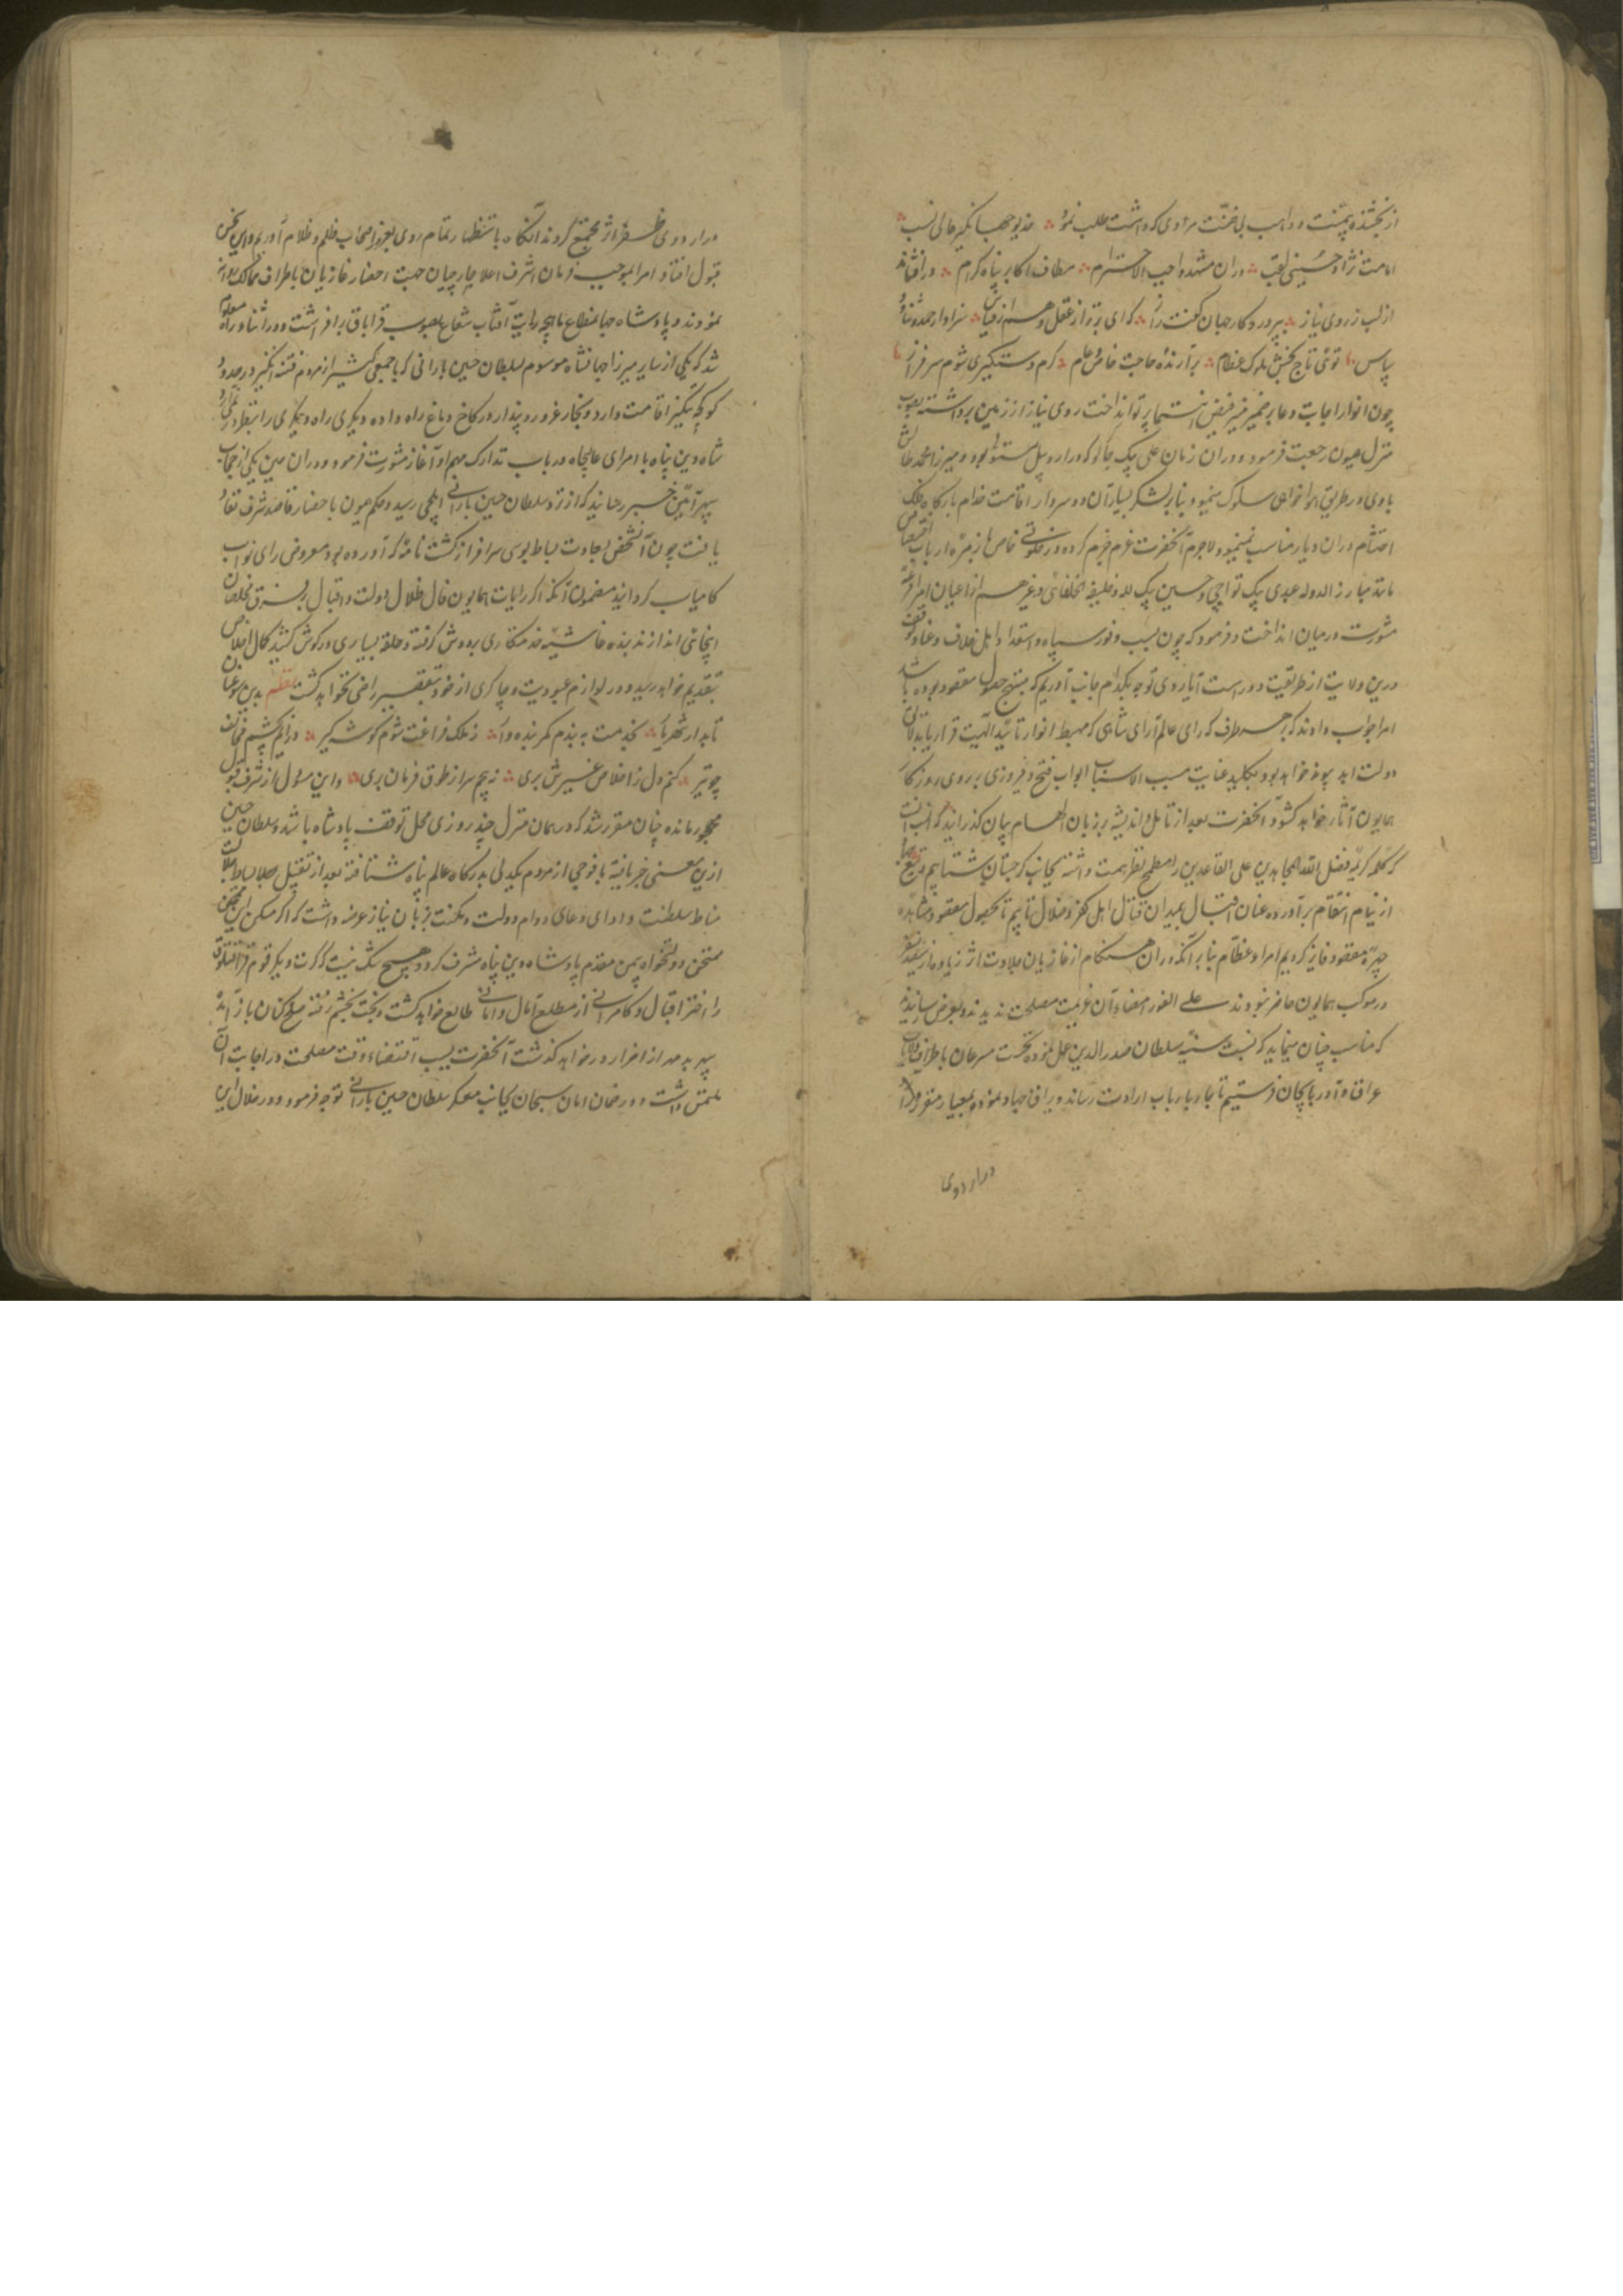 از بخشنده بی‌منت و واهب بی ضنّت مرادی که داشت طلب نمود خدیو جهانگیر عالی نسب
امامت نژاد حسینی لقب دران مشهد واجب الاحترام مطاف اکابر پناه کرام در افشاند
از لب ز روی نیاز بپروردگار جهان گفت راز که ای برتر از عقل و هم از قیاس سزاوار حمد و ثنا و
سپاس توئی تاج بخش ملوک عظام برآرنده حاجت خاص و عام کرم دستگیری شوم سرفراز
چون انوار اجابت دعا بر ضمیر منیر فیض پرتو انداخت روی نیاز از زمین برداشته بصوب
منزل همیون رجعت فرمود و دران زمان علی بیک چاکر که در اردبیل مستولی بود و میرزا محمد طالش
با وی در طریق هواخواهی سلوک مینمود بنا بر لشکر بسیار آن دو سردار اقامت خدام بارگاه فلک
احتشام دران دیار مناسب نمینمود لاجرم آنحضرت عزم جزم کرده در خلوتی خاص از زمره ارباب اختصاص
مانند مبارز الدوله عبدی بیک تواچی و حسین بیک لله و خلیفة الخلفائی و غیرهم از اعیان امرا قرعه
مشورت در میان انداخت و فرمود که چون بسبب وفور سپاه و استعداد اهل خلاف و عناد توقف
درین ولایت از طریقت دور است آیا روی توجه بکدام جانب آوریم که منتج حصول مقصود بوده باشد
امرا جواب دادند که بهر طرف که رای عالم آرای شاهی که مهبط انوار تأیید الهیست قرار یابد
دولت ابد پیوند خواهد بود و بکلید عنایت مسبب الاسباب ابواب فتح و فیروزی بر روی روزگار
همایون آثار خواهد گشود آنحضرت بعد از تأمل و اندیشه بر زبان الهام بیان گذرانید که انسب آنست
که کلمه کریمه فضل الله المجاهدین علی القاعدین را مطمح نظر همت داشته بجانب گرجستان شتابیم و تیغ
از نیام انتقام برآورده عنان اقبال بمیدان قتال اهل کفر و ضلال تابیم تا بحصول مقصود و مشاهده
چهره مقصود فایز گردیم امراء عظام بنا بر آنکه دران هنگام از غازیان جلادت اثر زیاده از سیصد نفر
در موکب همایون حاضر نبودند علی الفور امضاء آن عزیمت مصلحت ندیدند و بعرض رسانیدند
که مناسب چنان مینماید که بسنت سنیّه سلطان صدرالدین عمل نموده نخست مسرعان باطراف ولایات
عراق و آذربایجان فرستیم تا جار بارباب ارادت رساند و یراق جهاد نموده بمعیار مقرر
در اردوی
در اردوی ظفر اثر مجتمع گردند آنگاه باستظهار تمام روی بغزو اصحاب ظلم و ظلام آوریم و این سخن
قبول افتاد و امرا بموجب فرمان اشرف اعلا جارچیان جهت احضار غازیان باطراف ممالک روانه
نمودند و پادشاه جهانمطاع ماهچه رایت آفتاب شعاع بصوب قراباق برافراشت و در اثناء راه معلوم
شد که یکی از سایر میرزا جهانشاه موسوم بسلطان حسین بارانی که با جمعی کثیر از مردم فتنه انگیز در حدود
کوکچه تنگیز اقامت دارد و بخار غرور و پندار در کاخ دماغ راه داده دیگری را بنظر در نمی‌آورد
شاه دین پناه با امرای عالیجاه در باب تدارک مهم او آغاز مشورت فرمود و دران حین یکی از حجاب
سپهرآئین خبر رسانید که از نزد سلطان حسین بارانی ایلچی رسید و حکم همیون باحضار قاصد شرف نفاذ
یافت چون آنشخص بسعادت بساط بوسی سرافراز گشت نامه که آورده بود معروض رای نواب
کامیاب گردانید مضمون آنکه اگر رایات همایون فال ظلال دولت و اقبال بر مفرق مخلصان
اینجائی اندازند بنده غاشیه خدمتکاری بر دوش گرفته و حلقه بسیاری در گوش کشید کمال اخلاص
بتقدیم خواهد رسید و در لوازم عبودیت و چاکری از خود بتقصیر راضی نخواهد گشت نظم
تاجدار شهریار بخدمت به بندم کمر بنده وار ز ملک فراغت شوم گوشه گیر درآیم بچشم مخالف
چو تیر کنم دل ز اخلاص غیرش بری نه پیچم سر از طوق فرمان بری و این مسئول از شرف قبول
محجور مانده چنان مقرر شد که در همان منزل چند روزی محل توقف پادشاه باشد و سلطان حسین
ازین معنی خبر یافته با فوجی از مردم یکدلی بدرگاه عالم پناه شتافته بعد از تقبیل جلال بساط
مناط سلطنت و ادای دعای دوام دولت و مکنت بزبان نیاز عرضه داشت که اگر مسکن این
ممتحن دولتخواه بیمن مقدم پادشاه دین پناه مشرف گردد هیچ شک نیست که کرت دیگر قوم قراقویونلو
را اختر اقبال و کامرانی از مطلع آمال و امانی طالع خواهد گشت و بخت بخشم رفته صلح کنان باز آمده
سپهر بدمهر از اضرار در خواهد گذشت آنحضرت بسبب اقتضاء وقت مصلحت در اجابت آن
ملتمس داشت و در ضمان امان سبحان بجانب معسکر سلطان حسین بارانی توجه فرمود و در خلال این